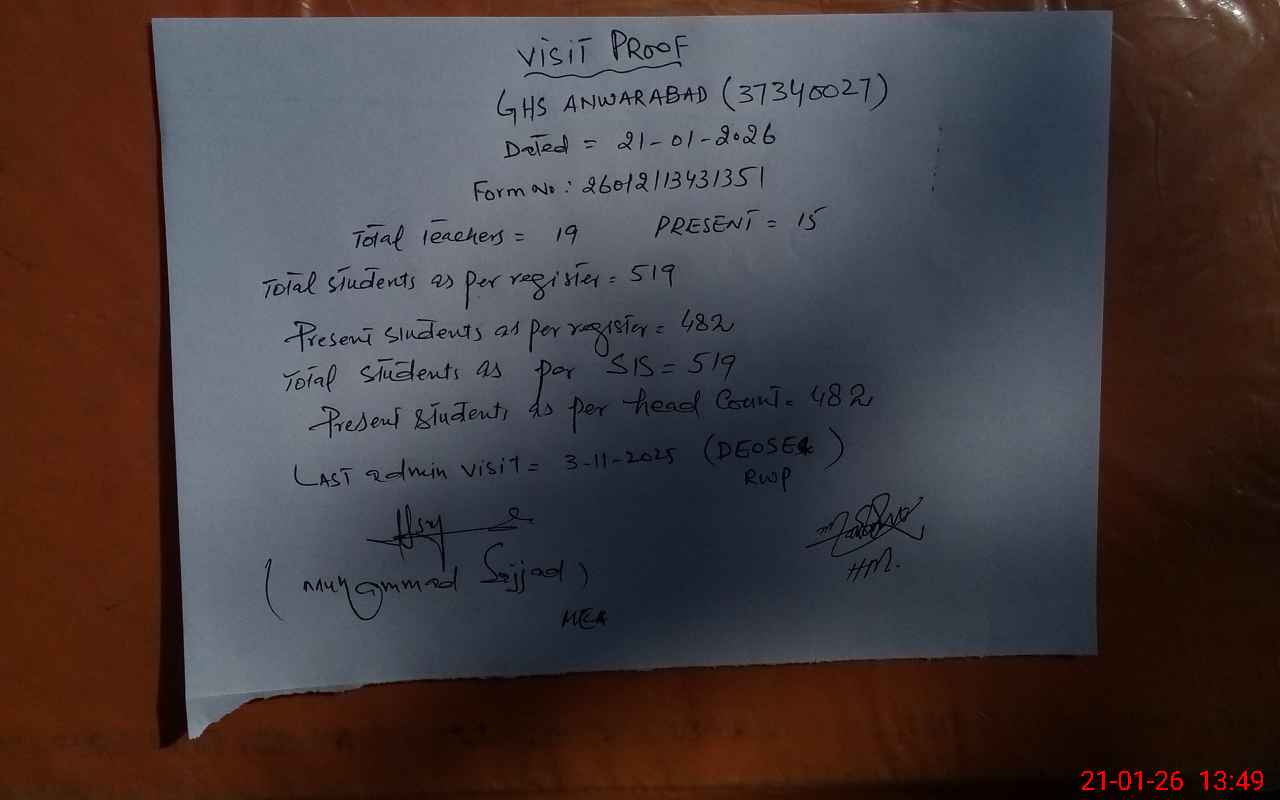 VISIT PROOF
GHS ANWARABAD (37340027)
Dated = 21-01-2026
Form No: 26012113431351
Total Teachers = 19 PRESENT = 15
Total students as per register = 519
Present students as per register = 482
Total students as per SIS = 519
Present students as per head count = 482
LAST admin visit = 3-11-2025 (DEOSE)
RWP
(Muhammad Sajjad)
HM.
MEA
21-01-26 13:49